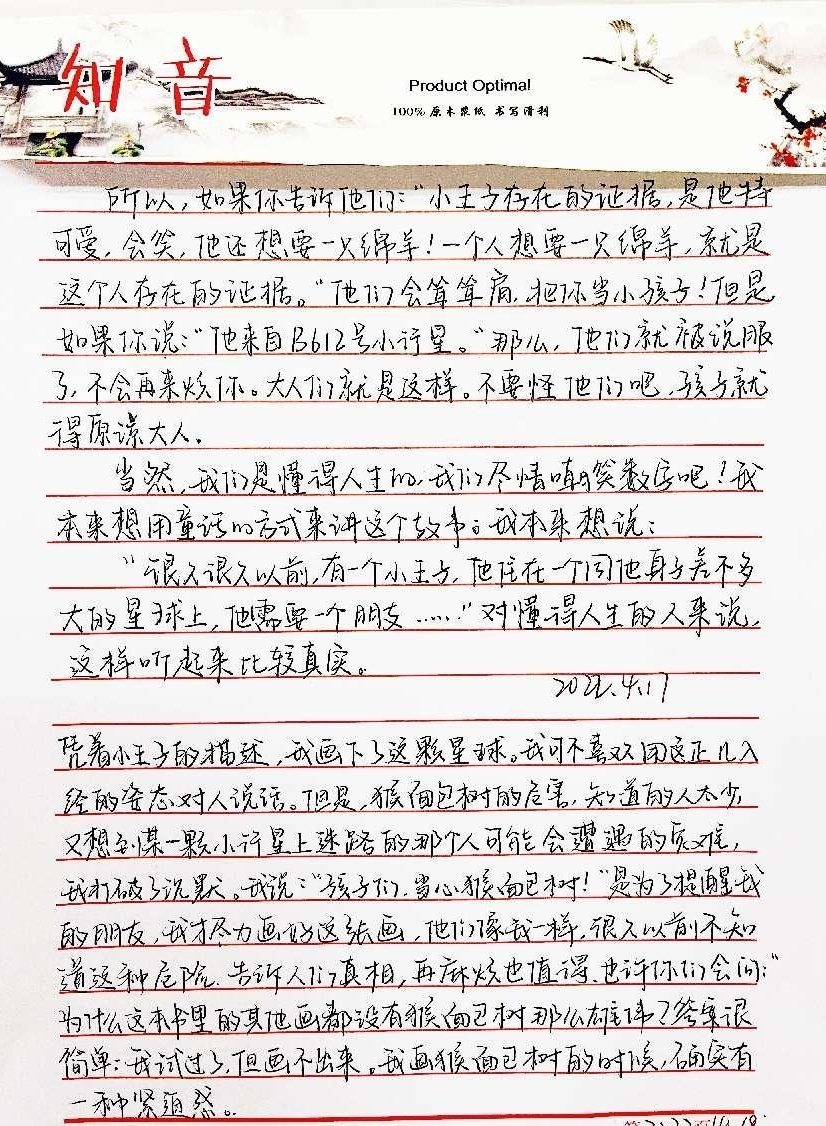 知音
Product Optimal
100%原木浆纸 书写滑利
所以，如果你告诉他们：“小王子存在的证据，是他特
可爱，会笑，他还想要一只绵羊！一个人想要一只绵羊，就是
这个人存在的证据。”他们会耸耸肩，把你当小孩子！但是
如果你说：“他来自B612号小行星。”那么，他们就被说服
了，不会再来烦你。大人们就是这样。不要怪他们吧，孩子就
得原谅大人。
当然，我们是懂得人生的，我们尽情嘲笑数字吧！我
本来想用童话的方式来讲这个故事。我本来想说：
“很久很久以前，有一个小王子，他住在一个同他身子差不多
大的星球上，他需要一个朋友……”对懂得人生的人来说，
这样听起来比较真实。
2022.4.17
凭着小王子的描述，我画下了这颗星球。我可不喜欢用这正儿八
经的姿态对人说话。但是，猴面包树的危害，知道的人太少，
又想到某一颗小行星上迷路的那个人可能会遭遇的灾难，
我打破了沉默。我说：“孩子们，当心猴面包树！”是为了提醒我
的朋友，我才尽力画好这张画，他们像我一样，很久以前不知
道这种危险，告诉人们真相，再麻烦也值得，也许你们会问：“
为什么这本书里的其他画都没有猴面包树那么雄伟？答案很
简单：我试过了，但画不出来。我画猴面包树的时候，确实有
一种紧迫感。